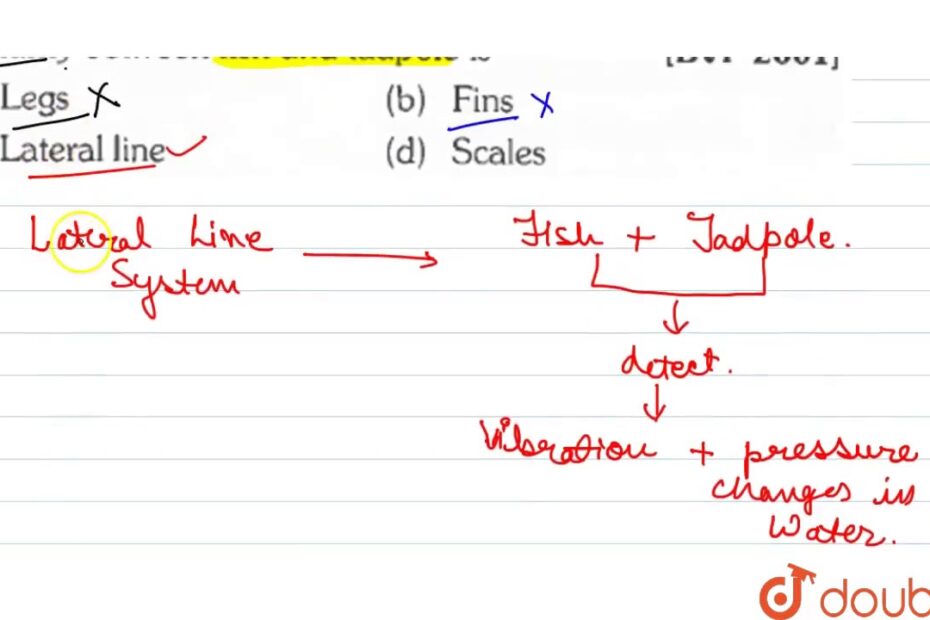 Legs X (b) Fins X
Lateral line ✓ (d) Scales
Lateral Line Fish + Tadpole.
System
detect.
Vibration + pressure
changes in
Water.
doub